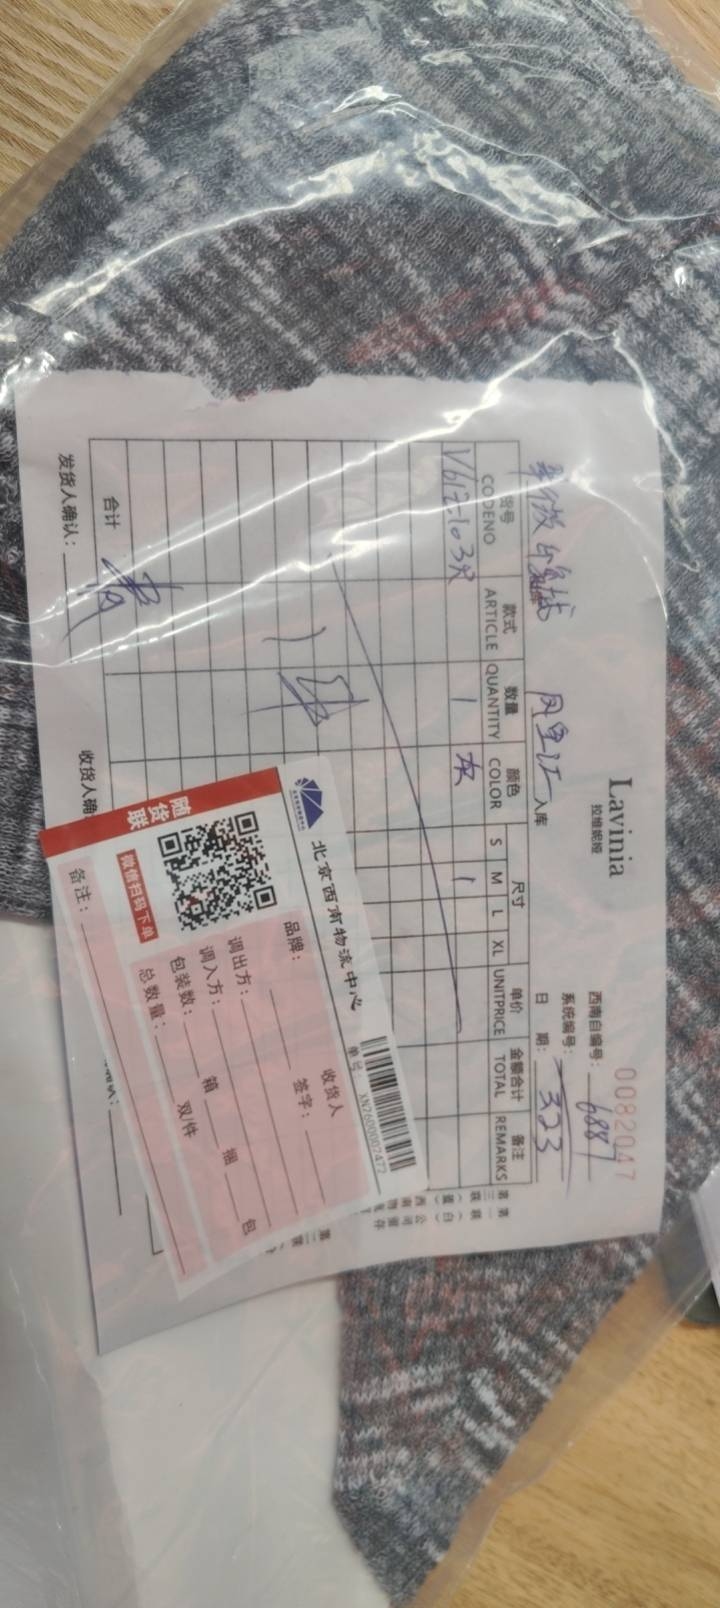 Lavinia
拉维妮娅
0082047
西南自编号: 6887
系统编号:
入库
日 期: 323
货号 款式 数量 颜色 尺寸 单价 金额合计 备注
CODENO ARTICLE QUANTITY COLOR S M L XL UNITPRICE TOTAL REMARKS
1 灰 1
合计
发货人确认:
收货人确
北京西南物流中心
单号: XN2600007477
随货联
微信扫码下单
品牌:
收货人
签字:
调出方:
调入方:
包装数: 箱 捆 包
总数量: 双/件
备注: